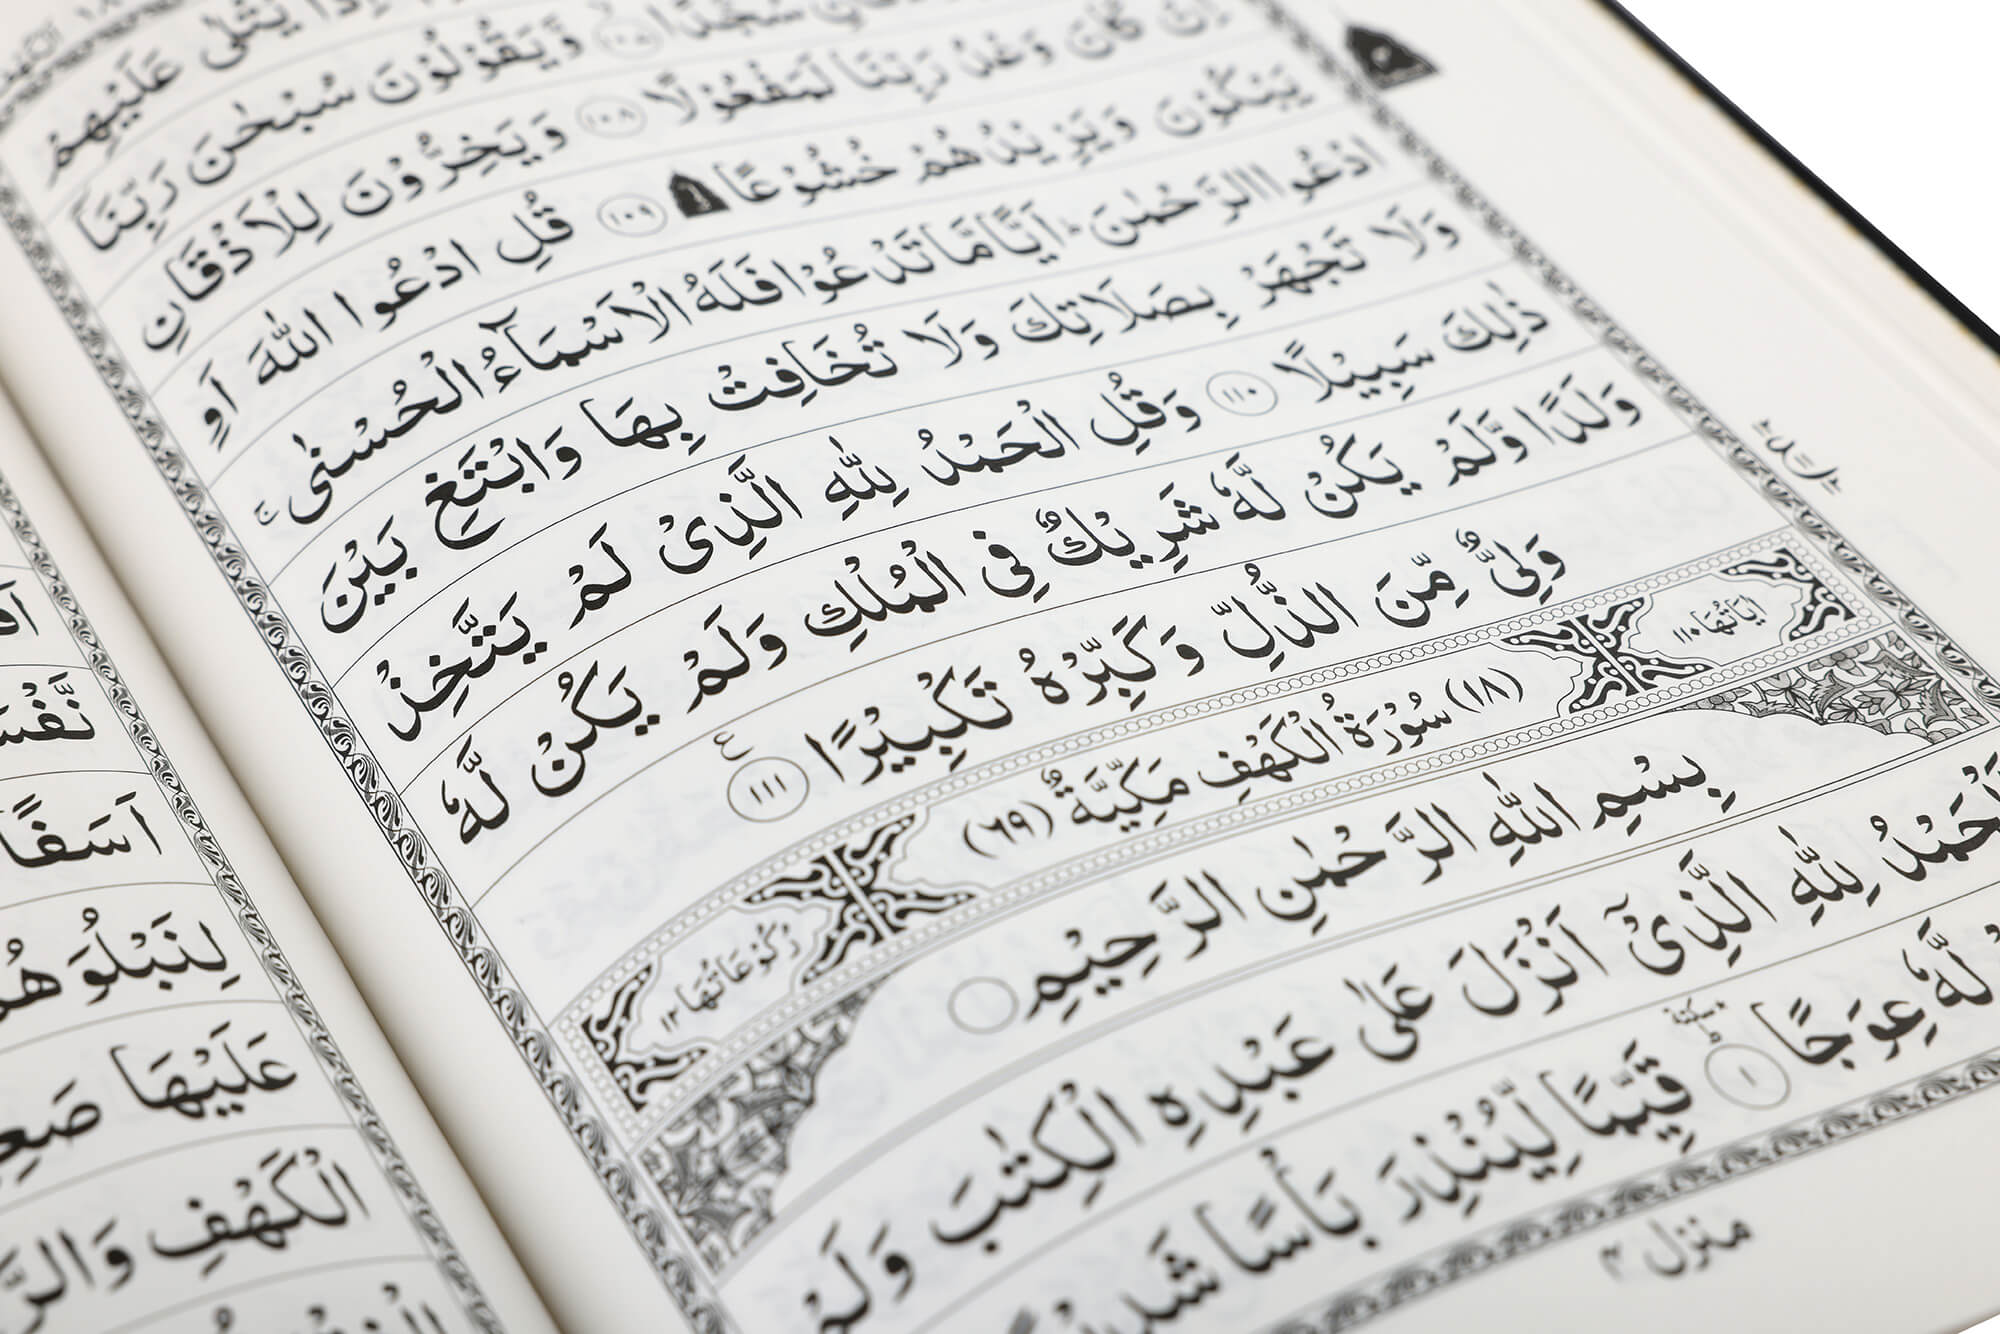 يُتْلٰى عَلَيْهِمْ
سُجَّدًا ۝١٠٧ وَّيَقُوْلُوْنَ سُبْحٰنَ رَبِّنَاۤ
اِنْ كَانَ وَعْدُ رَبِّنَا لَمَفْعُوْلًا ۝١٠٨ وَيَخِرُّوْنَ لِلْاَذْقَانِ
يَبْكُوْنَ وَيَزِيْدُهُمْ خُشُوْعًا ۩ ۝١٠٩ قُلِ ادْعُوا اللّٰهَ اَوِ
ادْعُوا الرَّحْمٰنَ ؕ اَيًّا مَّا تَدْعُوْا فَلَهُ الْاَسْمَآءُ الْحُسْنٰى ۚ
وَلَا تَجْهَرْ بِصَلَاتِكَ وَلَا تُخَافِتْ بِهَا وَابْتَغِ بَيْنَ
ذٰلِكَ سَبِيْلًا ۝١١٠ وَقُلِ الْحَمْدُ لِلّٰهِ الَّذِىْ لَمْ يَتَّخِذْ
وَلَدًا وَّلَمْ يَكُنْ لَّهٗ شَرِيْكٌ فِى الْمُلْكِ وَلَمْ يَكُنْ لَّهٗ
وَلِىٌّ مِّنَ الذُّلِّ وَكَبِّرْهُ تَكْبِيْرًا ۝١١١ ع
اٰيَاتُهَا ١١٠ (١٨) سُوْرَةُ الْكَهْفِ مَكِّيَّةٌ (٦٩) رُكُوْعَاتُهَا ١٢
بِسْمِ اللّٰهِ الرَّحْمٰنِ الرَّحِيْمِ
اَلْحَمْدُ لِلّٰهِ الَّذِىْۤ اَنْزَلَ عَلٰى عَبْدِهِ الْكِتٰبَ وَلَمْ
لَّهٗ عِوَجًا ۝١ سكتة قَيِّمًا لِّيُنْذِرَ بَاْسًا
منزل ٤
نَّفْسَ
اَسَفًا
لِنَبْلُوَهُمْ
عَلَيْهَا
الْكَهْفِ